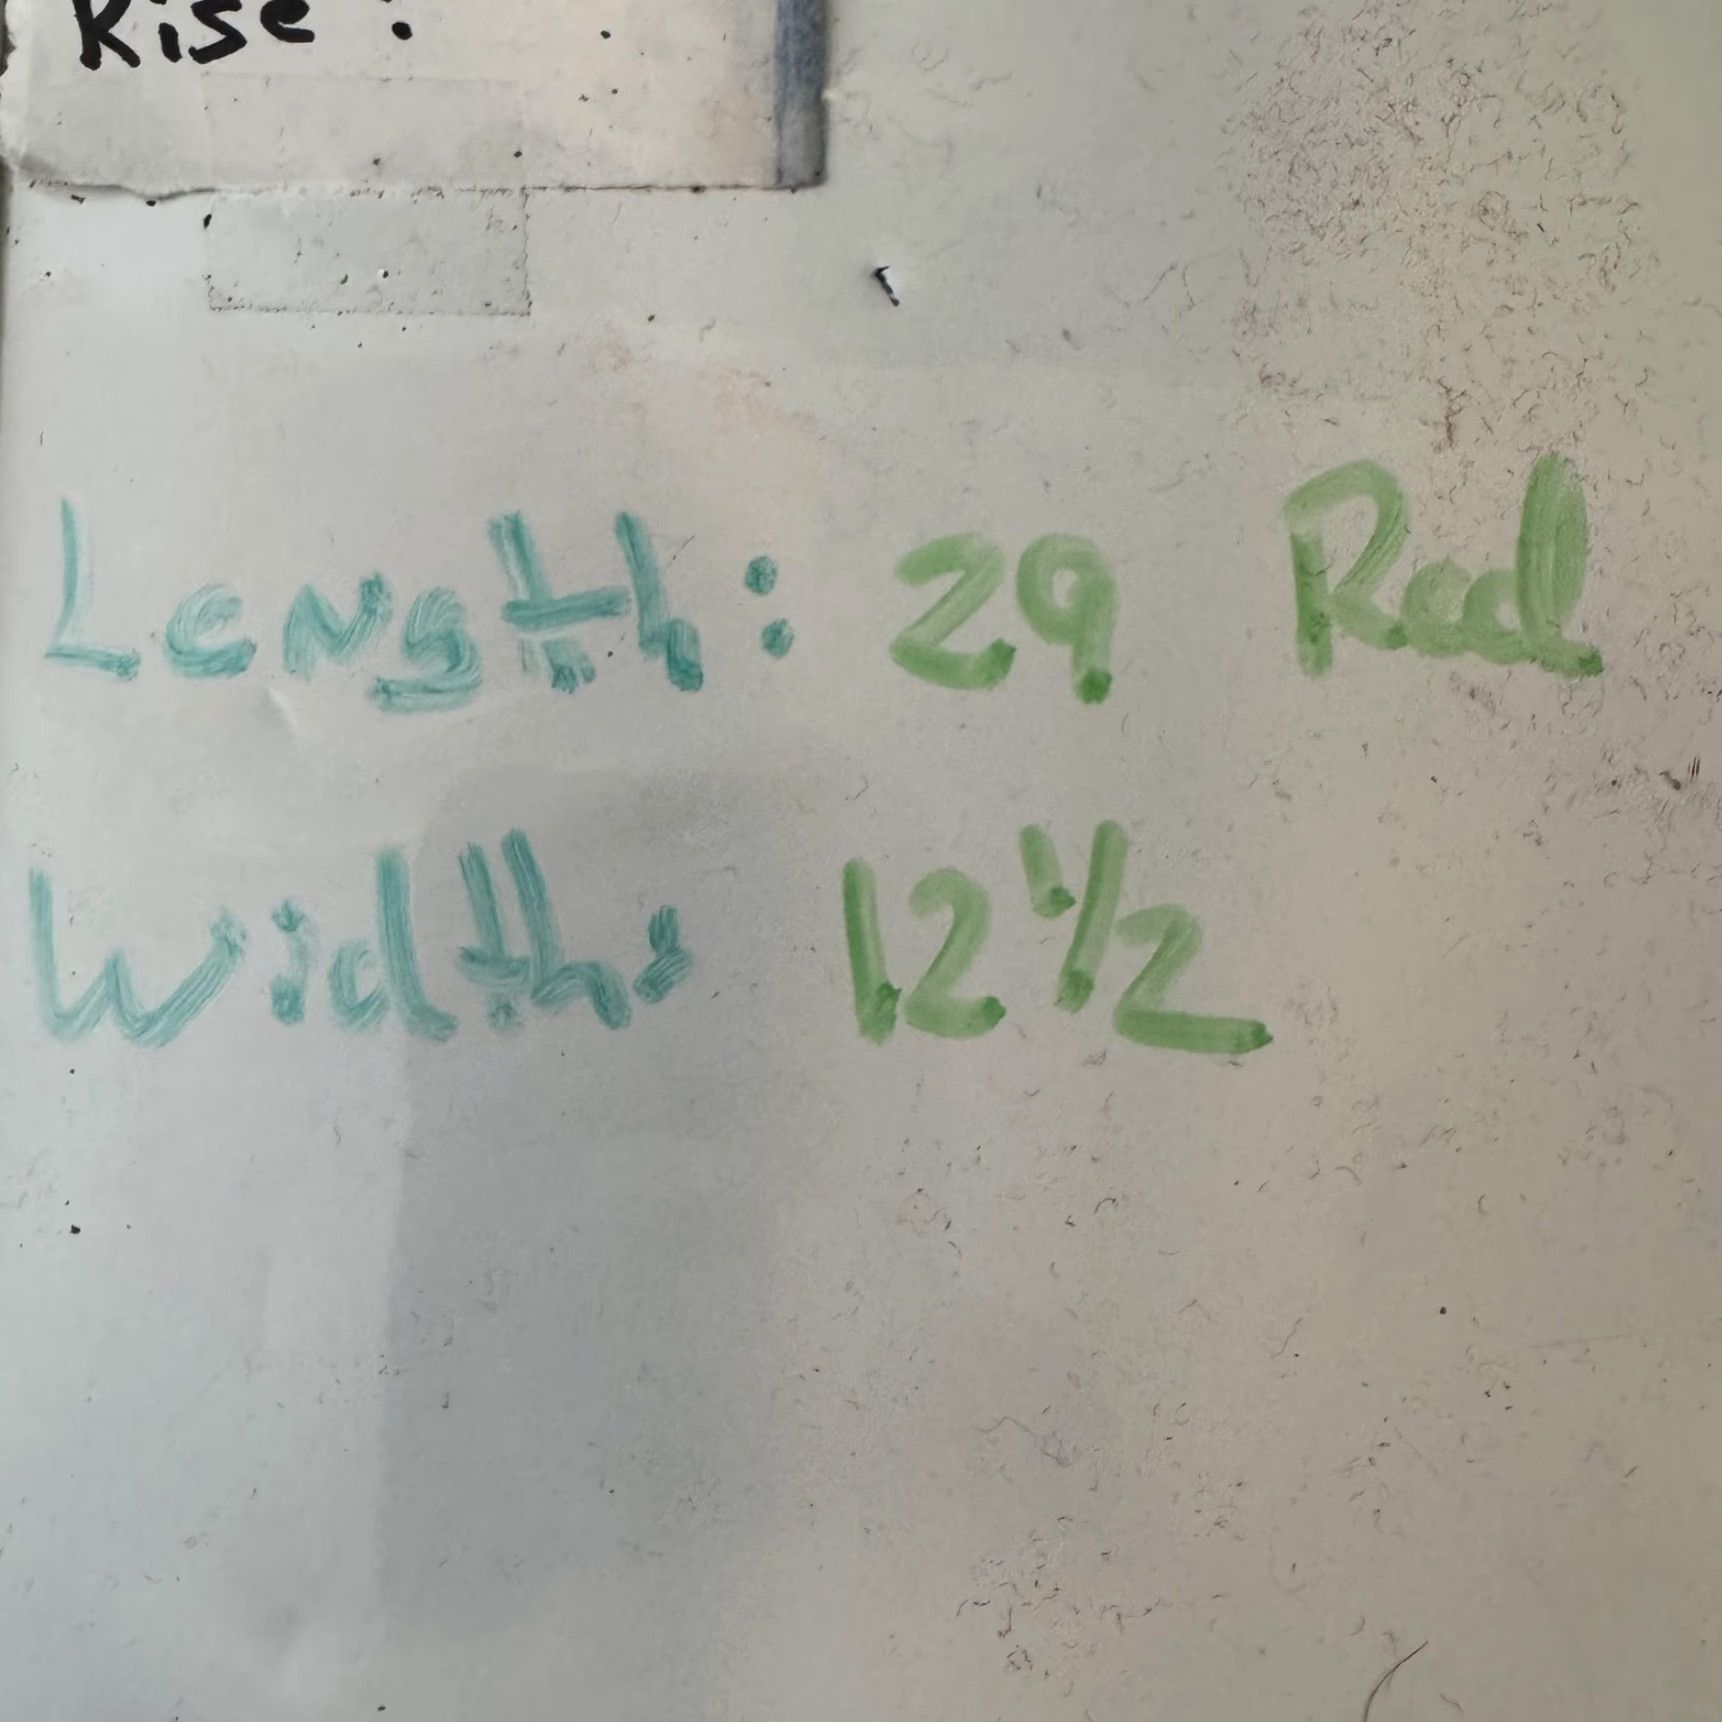 Rise:
Length: 29 Red
Width: 12 1/2